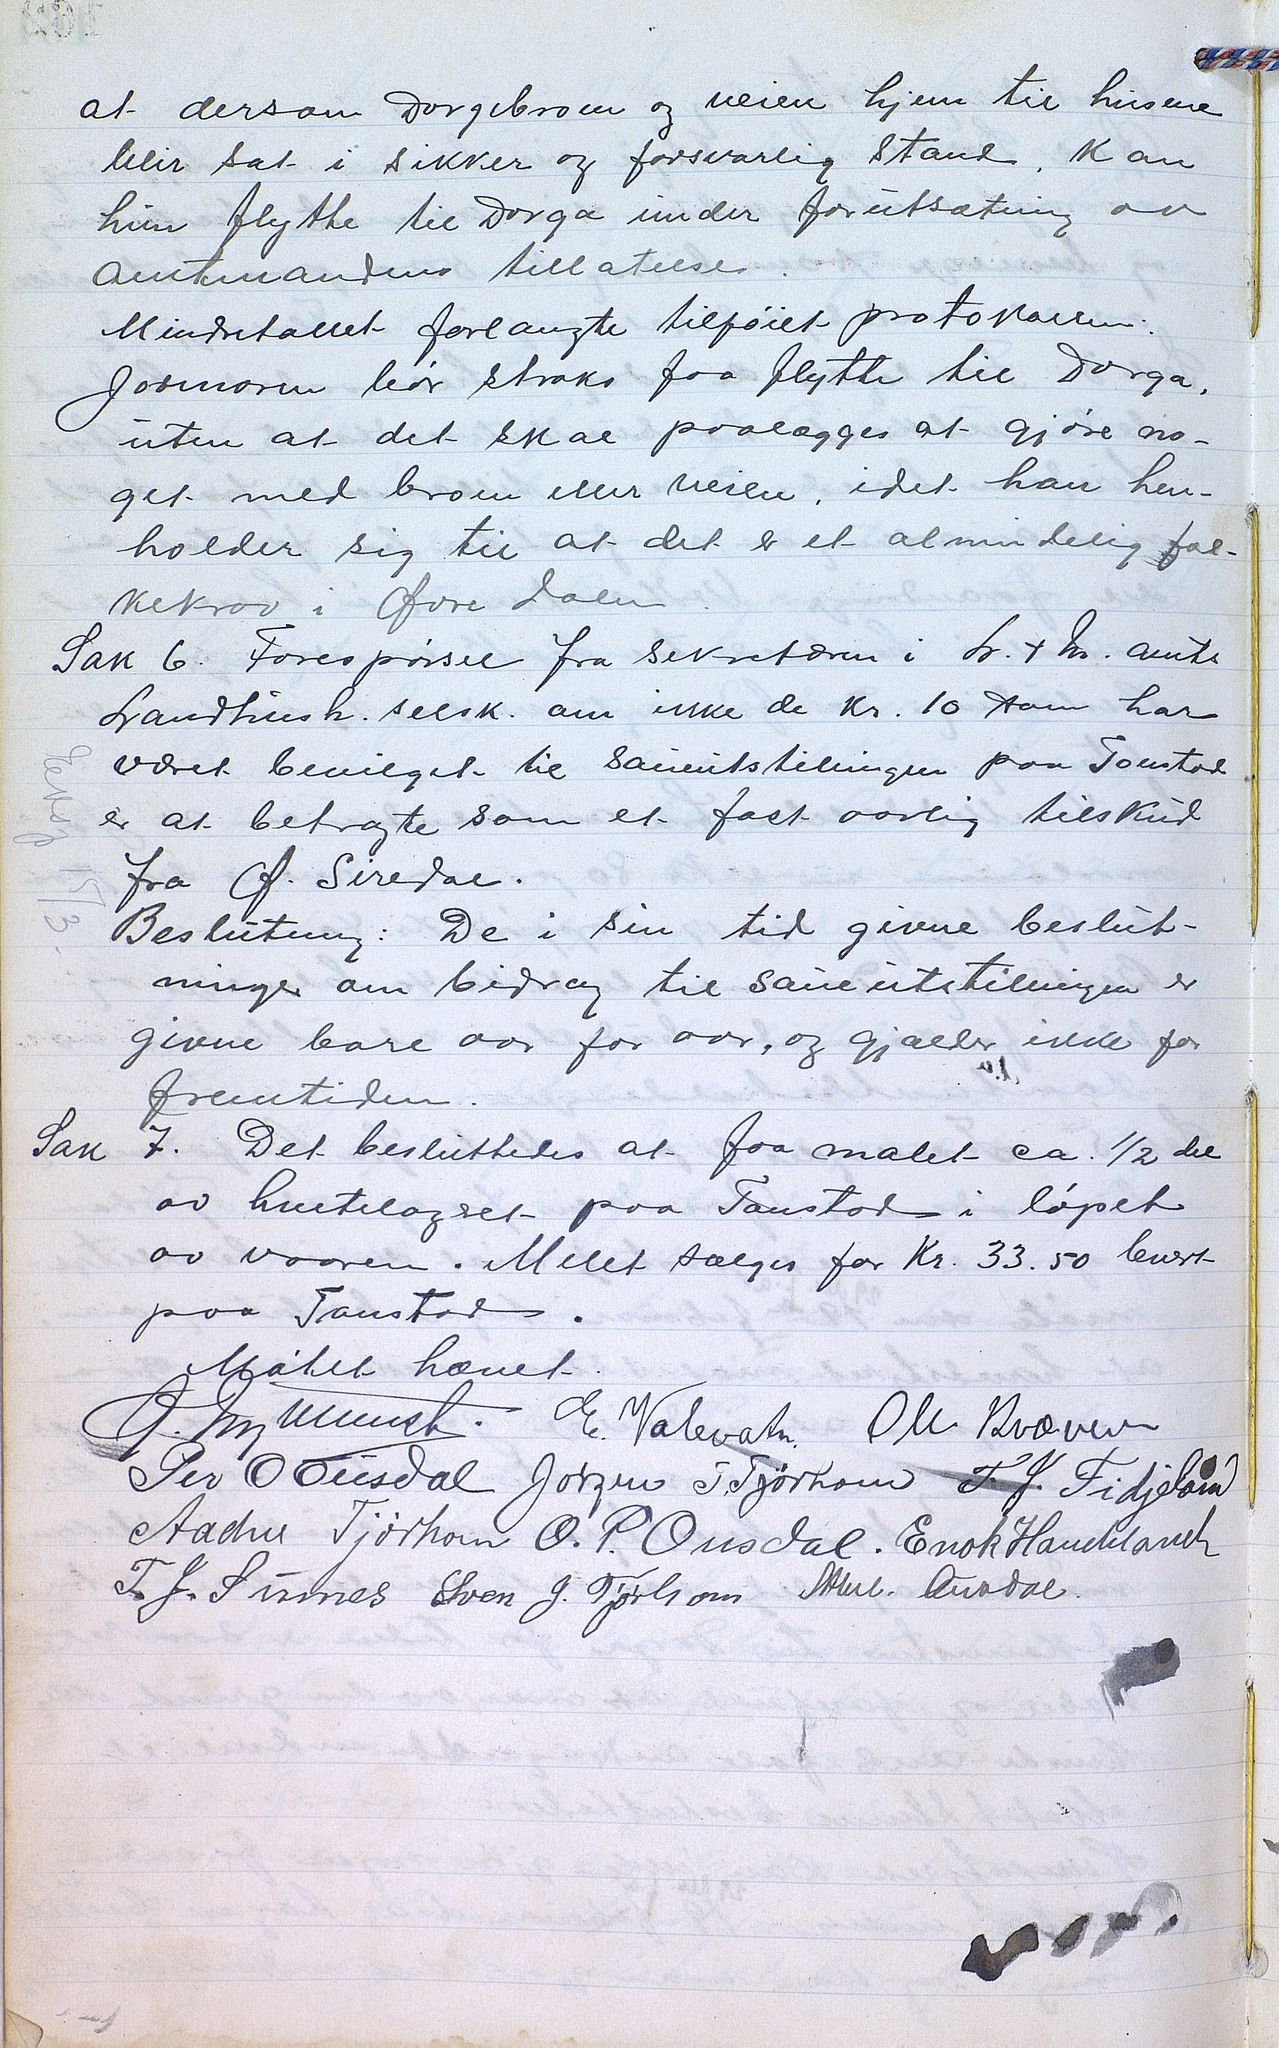 at dersom Dorgebroen og veien hjem til husene
blir sat i sikker og forsvarlig stand, kan
hun flytte til Dorga under forutsætning av
amtmandens tillatelse.
Mindretallet forlangte tilføiet protokollen:
Jormoren bør straks faa flytte til Dorga,
uten at det skal paalægges at gjøre no-
get med broen eller veien, idet han hen-
holder sig til at det er et almindelig fol-
kekrav i Øvre Dalen.
Sak 6. Forespørsel fra sekretæren i L. & M. amts
Landhush. selsk. om ikke de kr. 10 som har
været bevilget til saueutstillingen paa Tonstad
er at betragte som et fast aarlig tilskud
fra Ø. Siredal.
Beslutning: De i sin tid givne beslut-
ninger om bidrag til saueutstillingen er
givne bare aar for aar, og gjælder ikke for
fremtiden.
Sak 7. Det besluttedes at faa malet ca. 1/2 del
av hvetelagret paa Tonstad i løpet
av vaaren. Melet sælges for Kr. 33.50 levert
paa Tonstad.
Møtet hævet.
E. Valevatn. Ole Kvæven
Per O Ousdal Jørgen T. Tjørhom T. J. Fidjeland
Aadne Tjørhom O. P. Ousdal. Enok Haughland
T. J. Sinnes Sven J. Tjørhom Ousdal.
Eksp 15/3